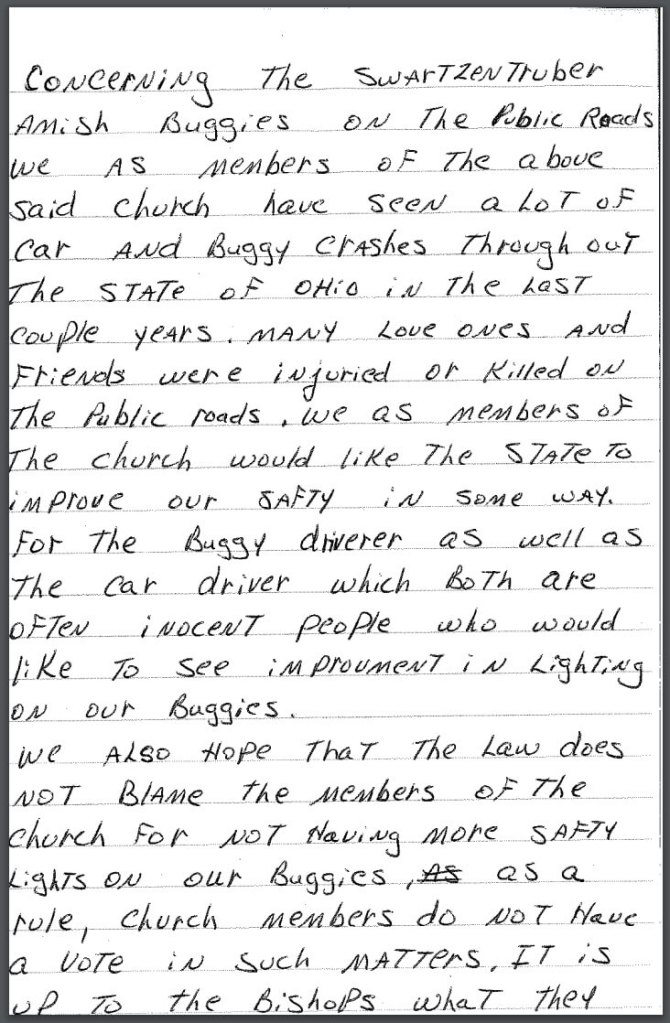 Concerning The Swartzentruber
Amish Buggies on The Public Roads
we as members of The above
said church have seen a Lot of
car and Buggy crashes Through out
The State of Ohio in The Last
couple years. many Love ones and
Friends were injuried or Killed on
The Public roads. we as members of
The church would like The State To
improve our safty in some way.
For The Buggy driverer as well as
The car driver which Both are
often inocent people who would
like To see improument in Lighting
on our Buggies.
we also Hope That The Law does
not Blame the members of The
church For not Having more safty
Lights on our Buggies, as as a
rule, church members do not Have
a vote in such matters. It is
up To the Bishops what they